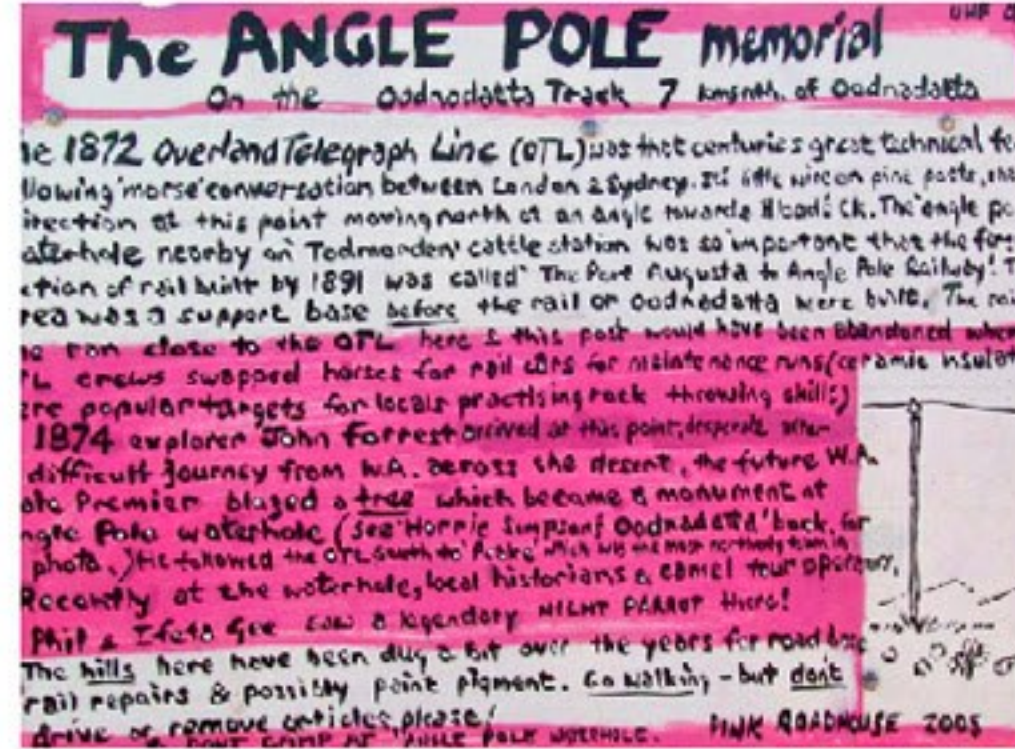 The ANGLE POLE memorial
UHF
On the Oodnadatta Track 7 kmsnth. of Oodnadatta
he 1872 Overland Telegraph Line (OTL) was that centuries great technical fe
llowing 'morse' conversation between London & Sydney. It's little wire on pine posts, cha
irection at this point moving north at an angle towards Ck. The 'angle po
aterhole nearby on 'Todmorden' cattle station was so important that the firs
ction of rail built by 1891 was called "The Port Augusta to Angle Pole Railway". T
rea was a support base before the rail or Oodnadatta were built. The rai
ne ran close to the OTL here & this post would have been abandoned when
TL crews swapped horses for rail cars for maintenance runs (ceramic insulat
ere popular targets for locals practising rock throwing skills)
1874 explorer John Forrest arrived at this point, desperate after
difficult Journey from W.A. across the desert, the future W.A.
ate Premier blazed a tree which became a monument at
ngle Pole waterhole (see 'Horrie Simpson's Oodnadatta' book, for
photo.) He followed the OTL south to 'Peake' which was the most northerly town in
Recently at the waterhole, local historians & camel tour operators,
Phil & Ifeta Gee saw a legendary NIGHT PARROT there!
The hills here have been dug a bit over the years for road base
rail repairs & possibly paint pigment. Go walking - but dont
drive or remove articles, please!
& DONT CAMP AT 'ANGLE POLE WATERHOLE.
PINK ROADHOUSE 2005